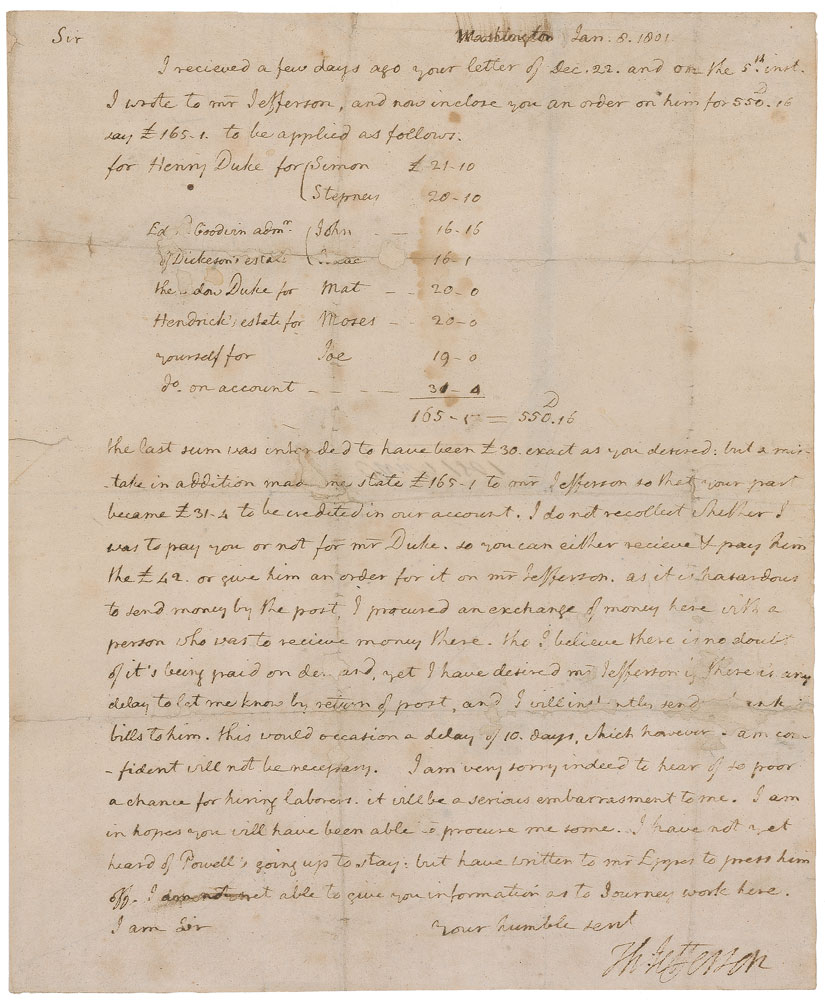 Sir Washington Jan. 8. 1801.
I recieved a few days ago your letter of Dec. 22. and on the 5th inst.
I wrote to mr Jefferson, and now inclose you an order on him for 550D.16
say £165-1. to be applied as follows.
for Henry Duke for Simon £ 21-10
Stepney 20-10
Ed Goodwin admr. John 16-16
of Dickeson's estate Isaac 16-1
the dow Duke for Mat 20-0
Hendrick's estate for Moses 20-0
yourself for Joe 19-0
do. on account 31-4
165-1 = 550D.16
the last sum was intended to have been £30. exact as you desired: but a mis-
-take in addition made me state £165-1 to mr Jefferson so that your part
became £31-4 to be credited in our account. I do not recollect whether I
was to pay you or not for mr Duke. so you can either recieve & pay him
the £42. or give him an order for it on mr Jefferson. as it is hazardous
to send money by the post, I procured an exchange of money here with a
person who was to recieve money there. tho' I believe there is no doubt
of it's being paid on demand, yet I have desired mr Jefferson if there is any
delay to let me know by return of post, and I will instantly send bank
bills to him. this would occasion a delay of 10. days, which however I am con-
-fident will not be necessary. I am very sorry indeed to hear of so poor
a chance for hiring laborers. it will be a serious embarrasment to me. I am
in hopes you will have been able to procure me some. I have not yet
heard of Powell's going up to stay: but have written to mr Eppes to press him
off. I am not yet able to give you information as to Journey work here.
I am Sir your humble servt
Th: Jefferson